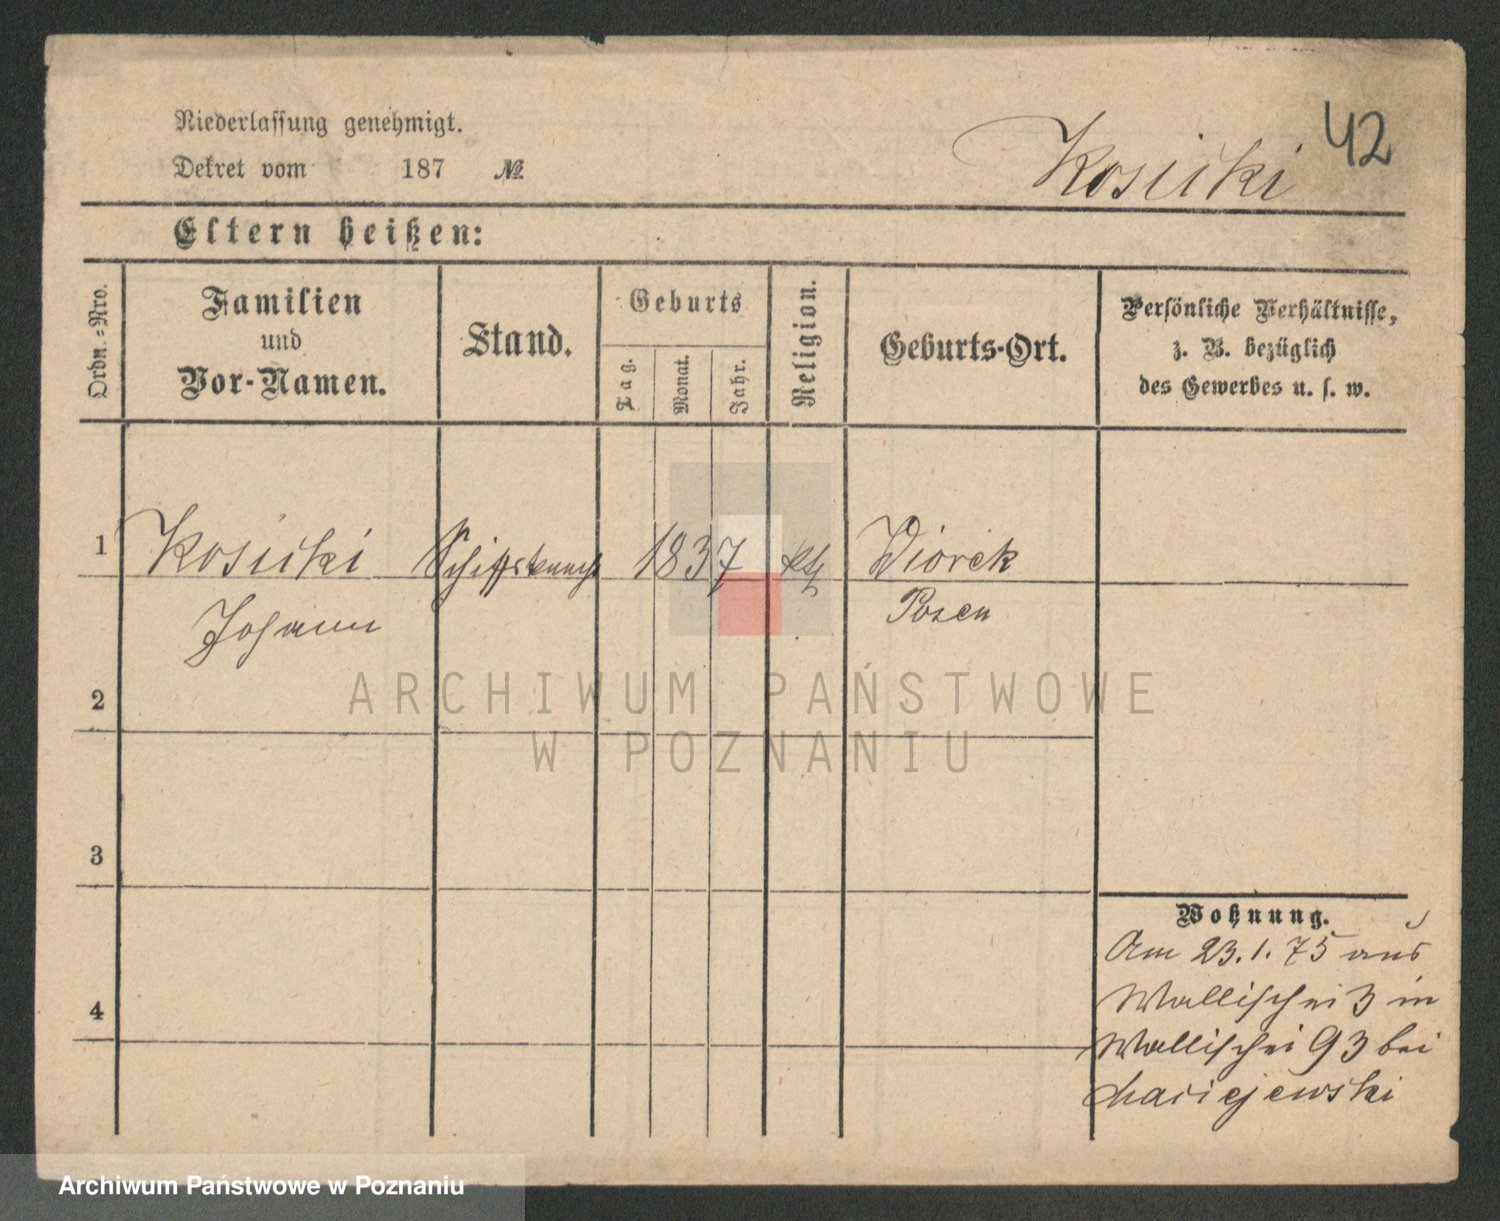 42
Niederlassung genehmigt.
Dekret vom 187 №
Kosicki
Eltern heißen:
Ordn.-Nro.
Familien
und
Vor-Namen.
Stand.
Geburts
Tag.
Monat.
Jahr.
Religion.
Geburts-Ort.
Persönliche Verhältnisse,
z. B. bezüglich
des Gewerbes u. s. w.
1 Kosicki Schiffsknecht 1837 kth Wiorek
Johann Posen
2
3
4
Wohnung.
Am 23.1.75 aus
Wallischei 3 in
Wallischei 93 bei
Maciejewski
ARCHIWUM PAŃSTWOWE
W POZNANIU
Archiwum Państwowe w Poznaniu